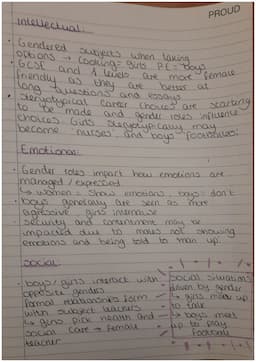 PROUD
Intellectual:
• Gendered subjects when taking
options → Cooking= girls P.E = boys
• GCSE and A levels are more female
friendly as they are better at
long questions and essays
• stereotypical career choices are starting
to be made and gender roles influence
choices Girls stereotypically may
become nurses and boys footballers.
Emotional:
• Gender roles impact how emotions are
managed / expressed
↳ women = show emotions boys = don't
• boys generally are seen as more
agressive girls internalise
• Security and contentment may be
impacted due to males not showing
emotions and being told to man up.
Social
• boys/girls interact with
opposite genders
• Formal relationships form
with subject teachers
↳ girls pick health and
social care → female
teacher
Social situations
driven by gender
↳ girls meet up
to talk
↳ boys meet
up to play
football